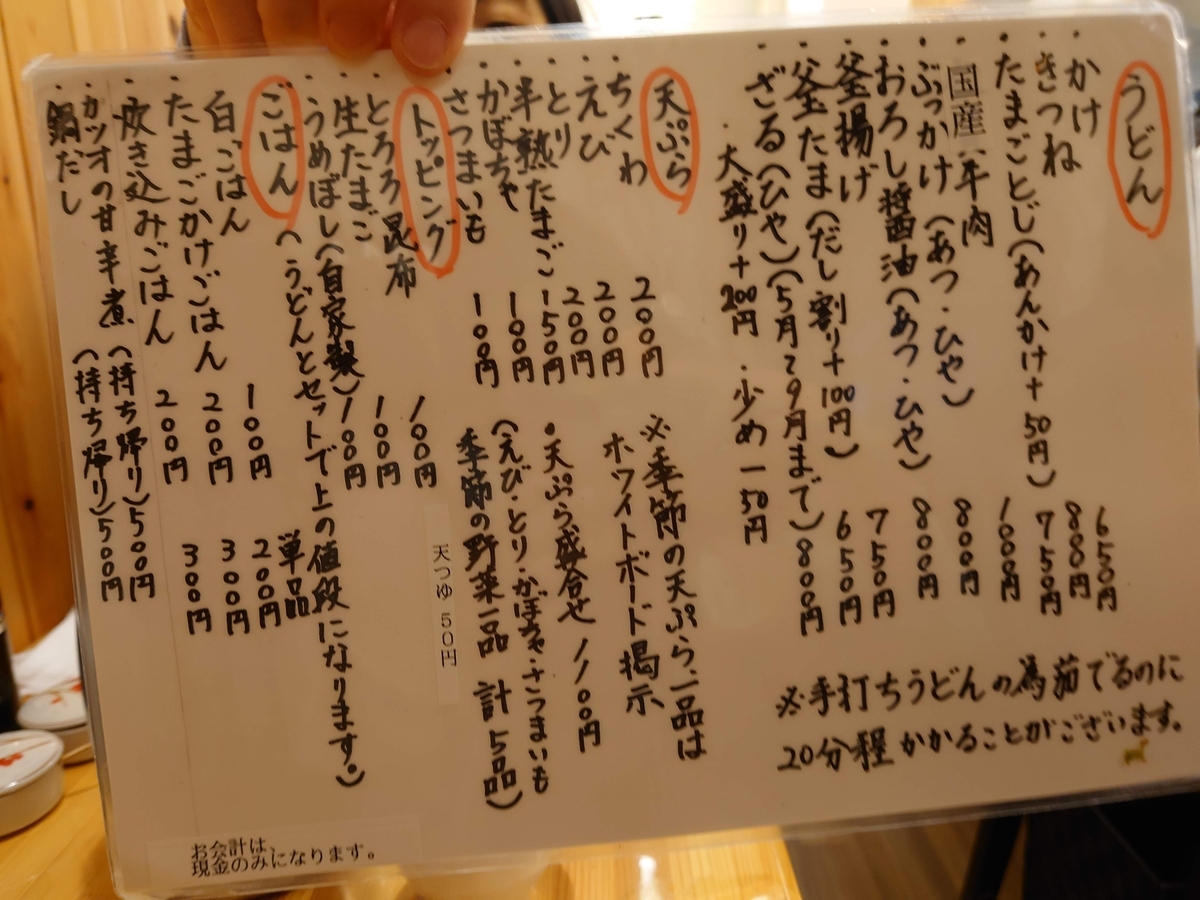 うどん
・かけ 650円
・きつね 800円
・たまごとじ(あんかけ+50円) 750円
・国産牛肉 1000円
・ぶっかけ(あつ・ひや) 800円
・おろし醤油(あつ・ひや) 800円
・釜揚げ 750円
・釜たま(だし割り+100円) 650円
・ざる(ひや)(5月~9月まで) 800円
・大盛り+200円 ・少め-50円
※手打ちうどんの為茹でるのに
20分程かかることがございます。
天ぷら
・ちくわ 200円
・えび 200円
・とり 200円
・半熟たまご 150円
・かぼちゃ 100円
・さつまいも 100円
※季節の天ぷら一品は
ホワイトボード掲示
・天ぷら盛合せ 1100円
(えび・とり・かぼちゃ・さつまいも
季節の野菜一品 計5品)
天つゆ 50円
トッピング
・とろろ昆布 100円
・生たまご 100円
・うめぼし(自家製) 100円
ごはん
(うどんとセットで上の値段になります。)
単品
・白ごはん 100円 200円
・たまごかけごはん 200円 300円
・炊き込みごはん 200円 300円
・カツオの甘辛煮(持ち帰り)500円
・鍋だし (持ち帰り)500円
お会計は
現金のみになります。